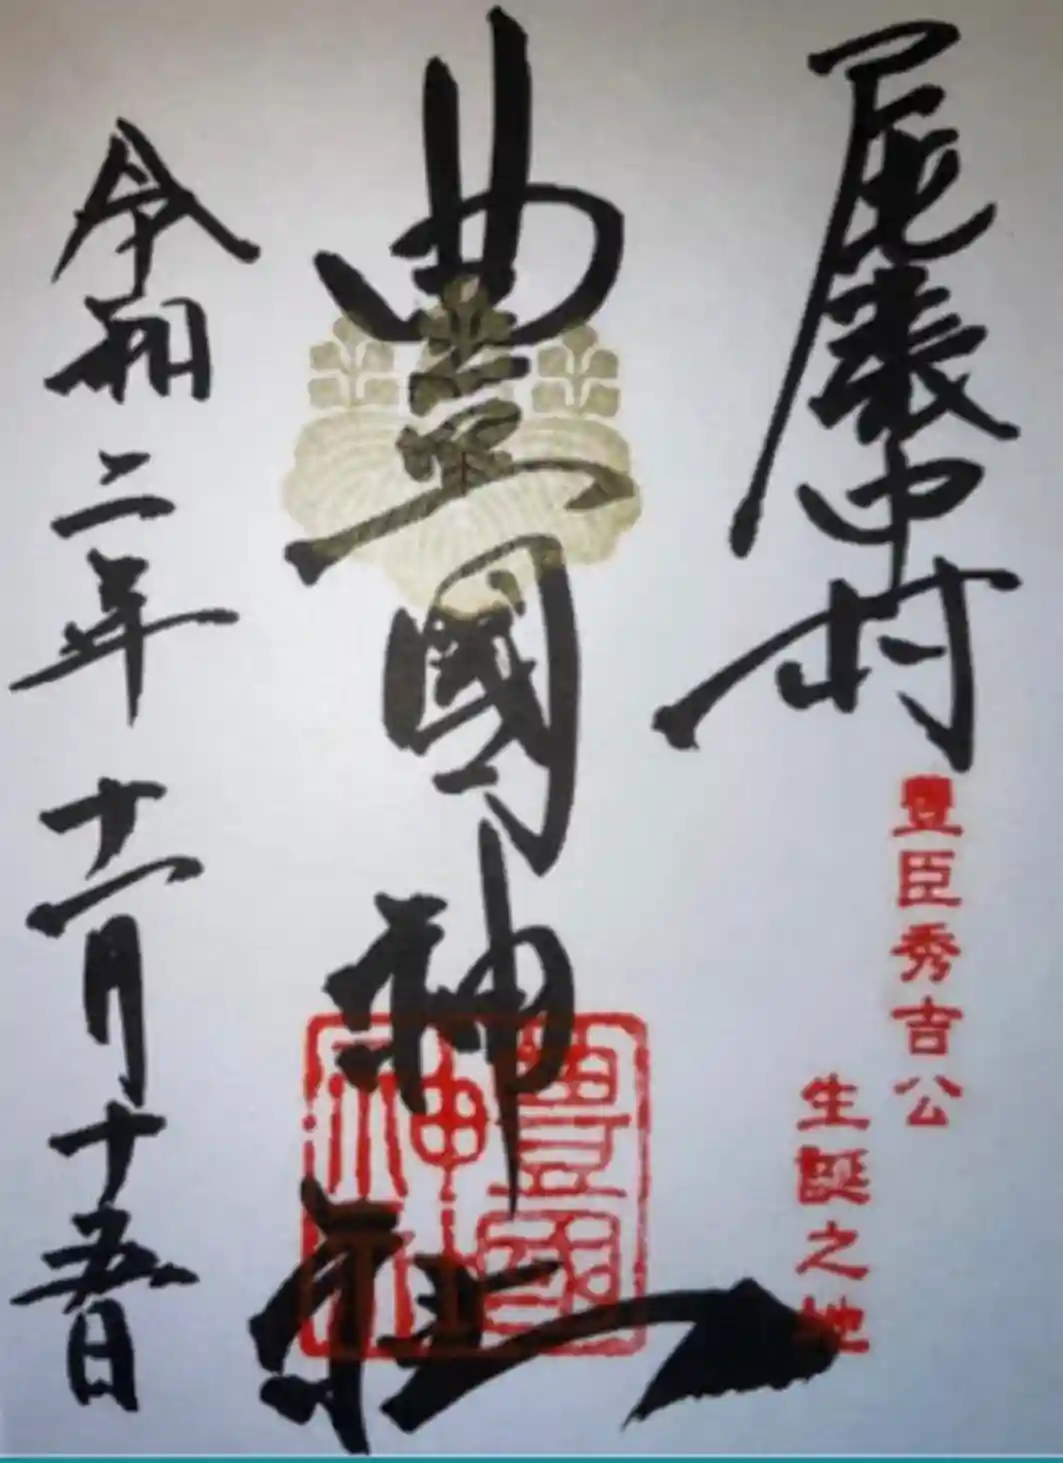 尾張中村
豊臣秀吉公
生誕之地
豊國神社
豊國神社
令和二年十一月十五日